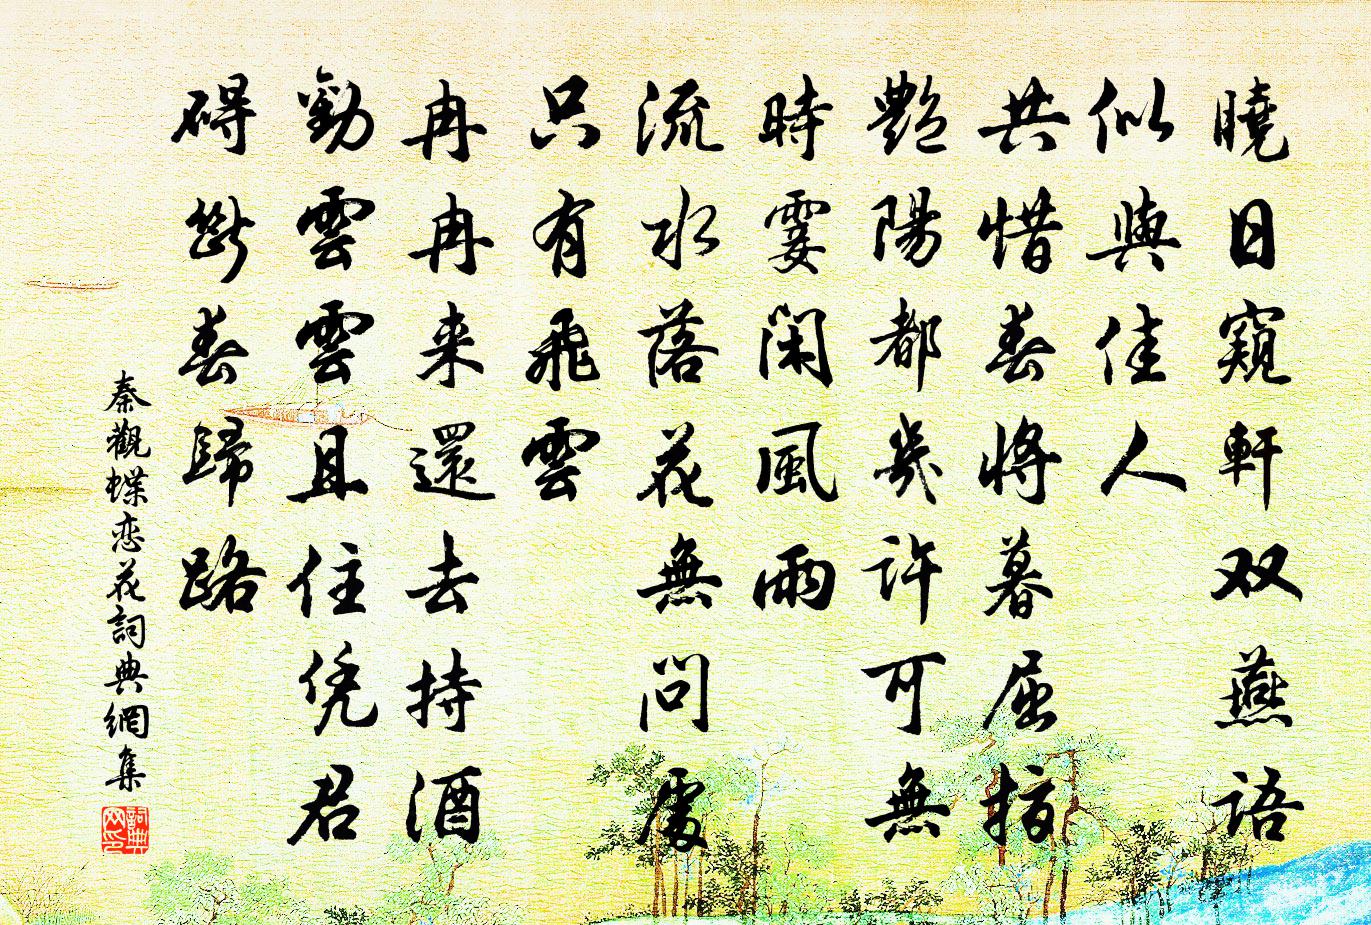 曉日窺軒双燕語
似與佳人
共惜春將暮屈指
艷陽都幾許可無
時霎閑風雨
流水落花無問處
只有飛雲
冉冉来還去持酒
勸雲雲且住凭君
碍斷春歸路
秦觀蝶恋花詞典網集
詞典